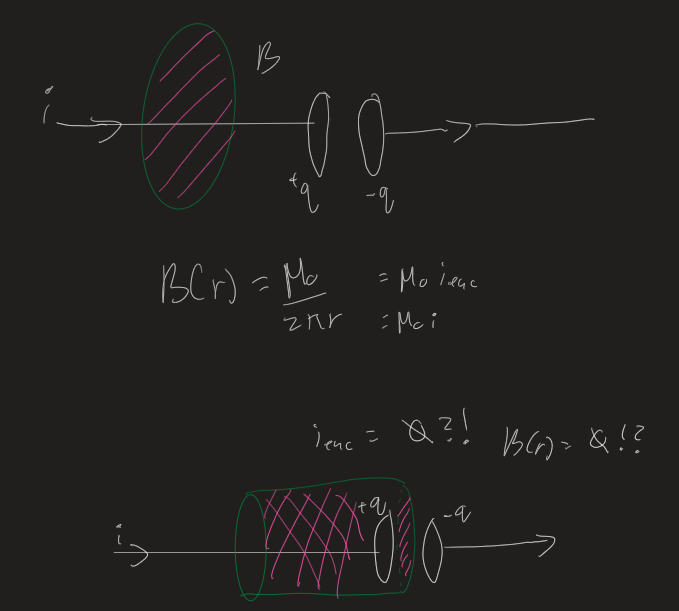 B
i
+q -q
B(r) = μ₀ / 2πr = μ₀ i enc
= μ₀ i
i enc = 0?! B(r) = 0!?
+q -q
i